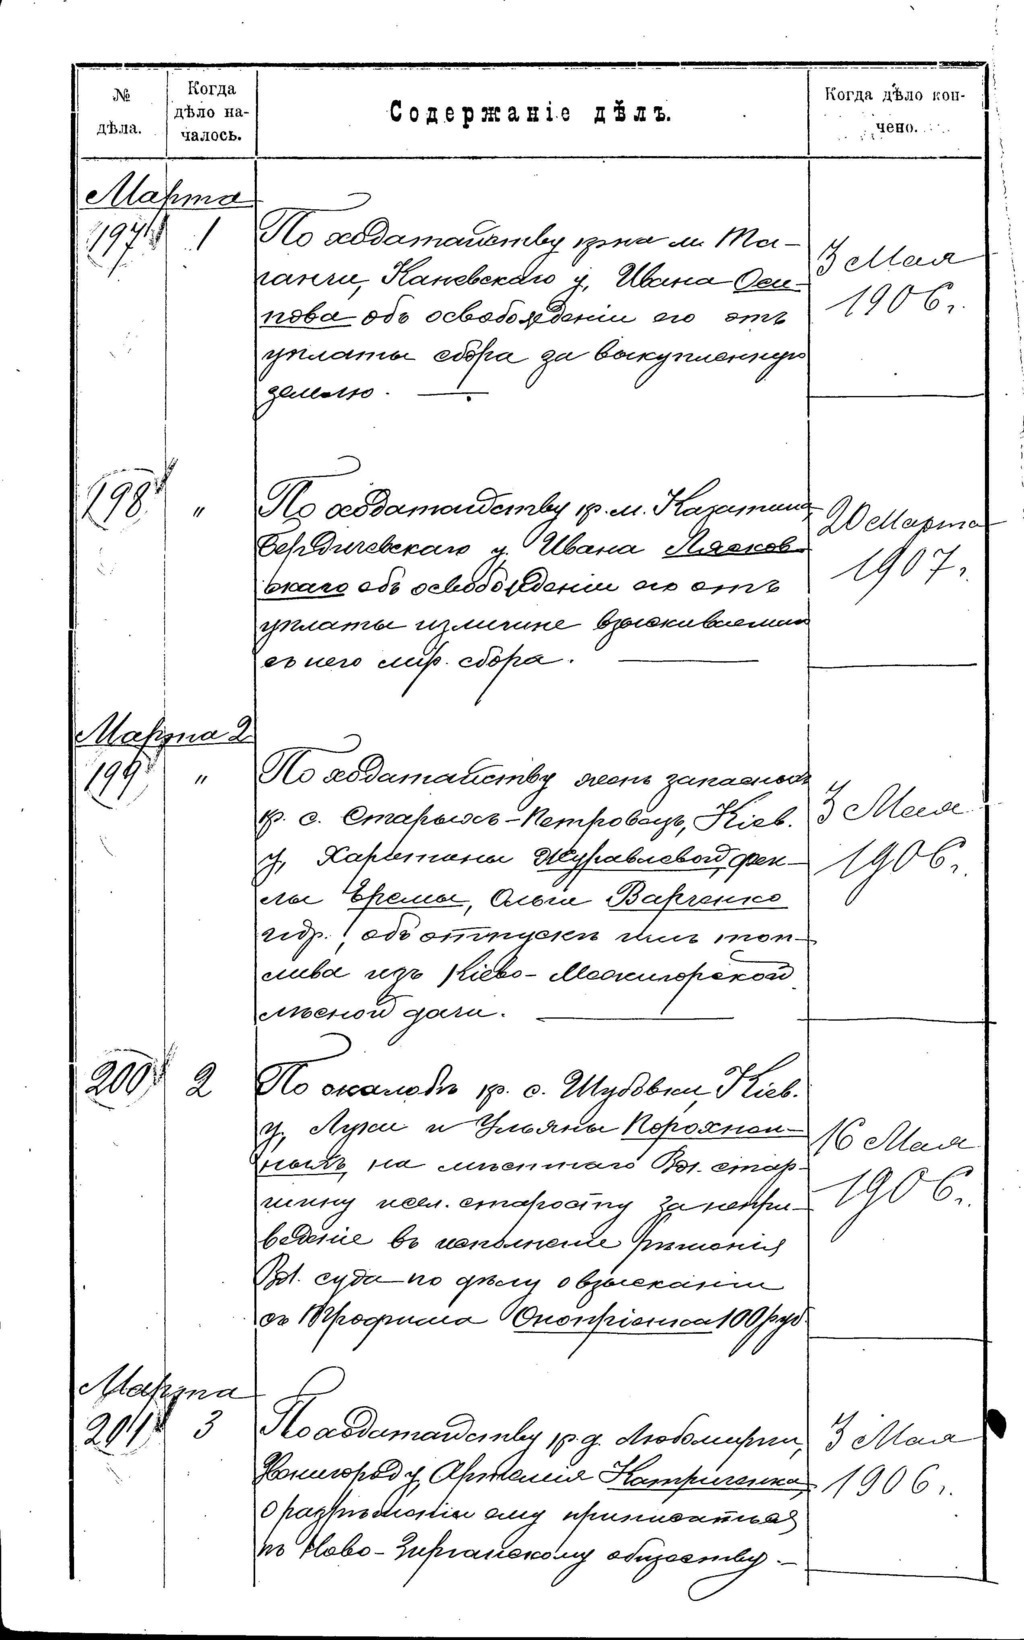 № дѣла.
Когда дѣло началось.
Содержаніе дѣлъ.
Когда дѣло кончено.
Марта
197 1 По ходатайству кр-на м. Та-
ганчи, Каневскаго у, Ивана Оси-
пова объ освобожденіи его отъ
уплаты сбора за выкупленную
землю.
3 Мая
1906 г.
198 " По ходатайству кр. м. Казатина,
Бердичевскаго у. Ивана Лясков-
скаго объ освобожденіи его отъ
уплаты излишне взыскиваемаго
съ него мір. сбора.
20 Марта
1907 г.
Марта 2
199 " По ходатайству жень запасныхъ
кр. с. Старыхъ-Петровецъ, Кіев.
у, Харитины Журавлевой, Фек-
лы Еремы, Ольги Варченко
и др. объ отпускѣ имъ топ-
лива изъ Кіево-Межигорской
лѣсной дачи.
3 Мая
1906 г.
200 2 По жалобѣ кр. с. Шубовки, Кіев.
у, Луки и Ульяны Порохнон-
ныхъ, на мѣстнаго Вол. стар-
шину и сел. старосту за непри-
веденіе въ исполненіе рѣшенія
Вол. суда по дѣлу о взысканіи
съ Трофима Оноприенка 100 руб.
16 Мая
1906 г.
Марта
201 3 По ходатайству кр. д. Любомирки,
Звенигород у, Артемія Катриченка,
о разрѣшеніи ему приписаться
къ Ново- обществу.
3 Мая
1906 г.